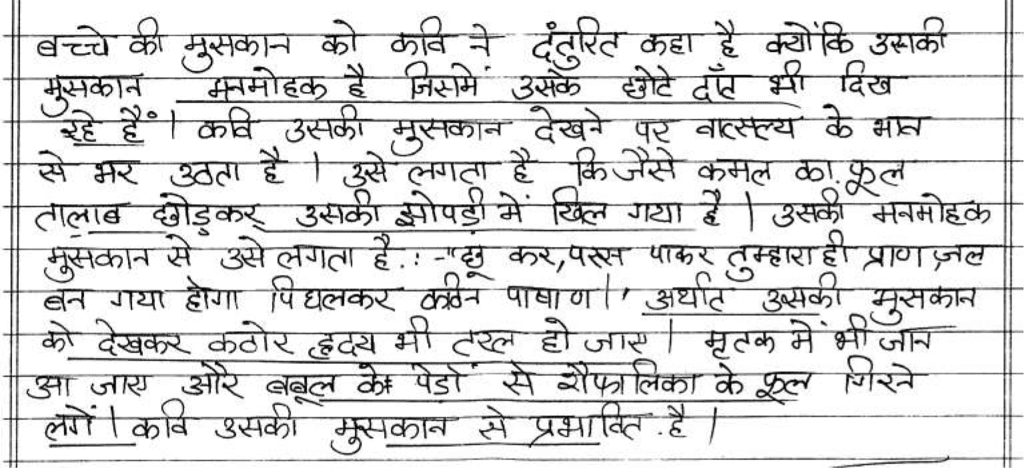 बच्चे की मुसकान को कवि ने दंतुरित कहा है क्योंकि उसकी
मुसकान मनमोहक है जिसमें उसके छोटे दाँत भी दिख
रहे हैं। कवि उसकी मुसकान देखने पर वात्सल्य के भाव
से भर उठता है। उसे लगता है कि जैसे कमल का फूल
तालाब छोड़कर उसकी झोपड़ी में खिल गया है। उसकी मनमोहक
मुसकान से उसे लगता है :- "छू कर, परस पाकर तुम्हारा ही प्राण, जल
बन गया होगा पिघलकर कठिन पाषाण।' अर्थात उसकी मुसकान
को देखकर कठोर हृदय भी तरल हो जाए। मृतक में भी जान
आ जाए और बबूल के पेड़ों से शैफालिका के फूल गिरने
लगें। कवि उसकी मुसकान से प्रभावित है।